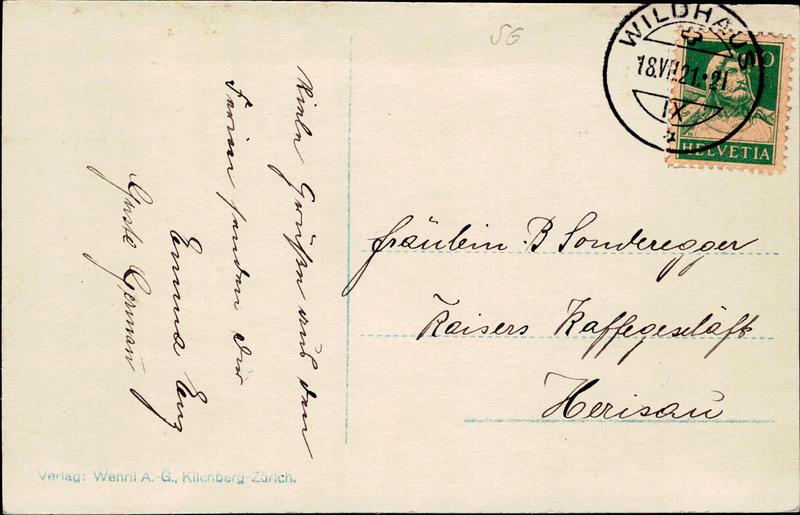 SG
WILDHAUS
18.VII.21.-21
IX
10
HELVETIA
Viele Grüsse aus den
Ferien senden dir
Emma Enz
Gertr. German
Fräulein B Sonderegger
Kaisers Kaffegeschäft
Herisau
Verlag: Wehrli A.-G., Kilchberg-Zürich.